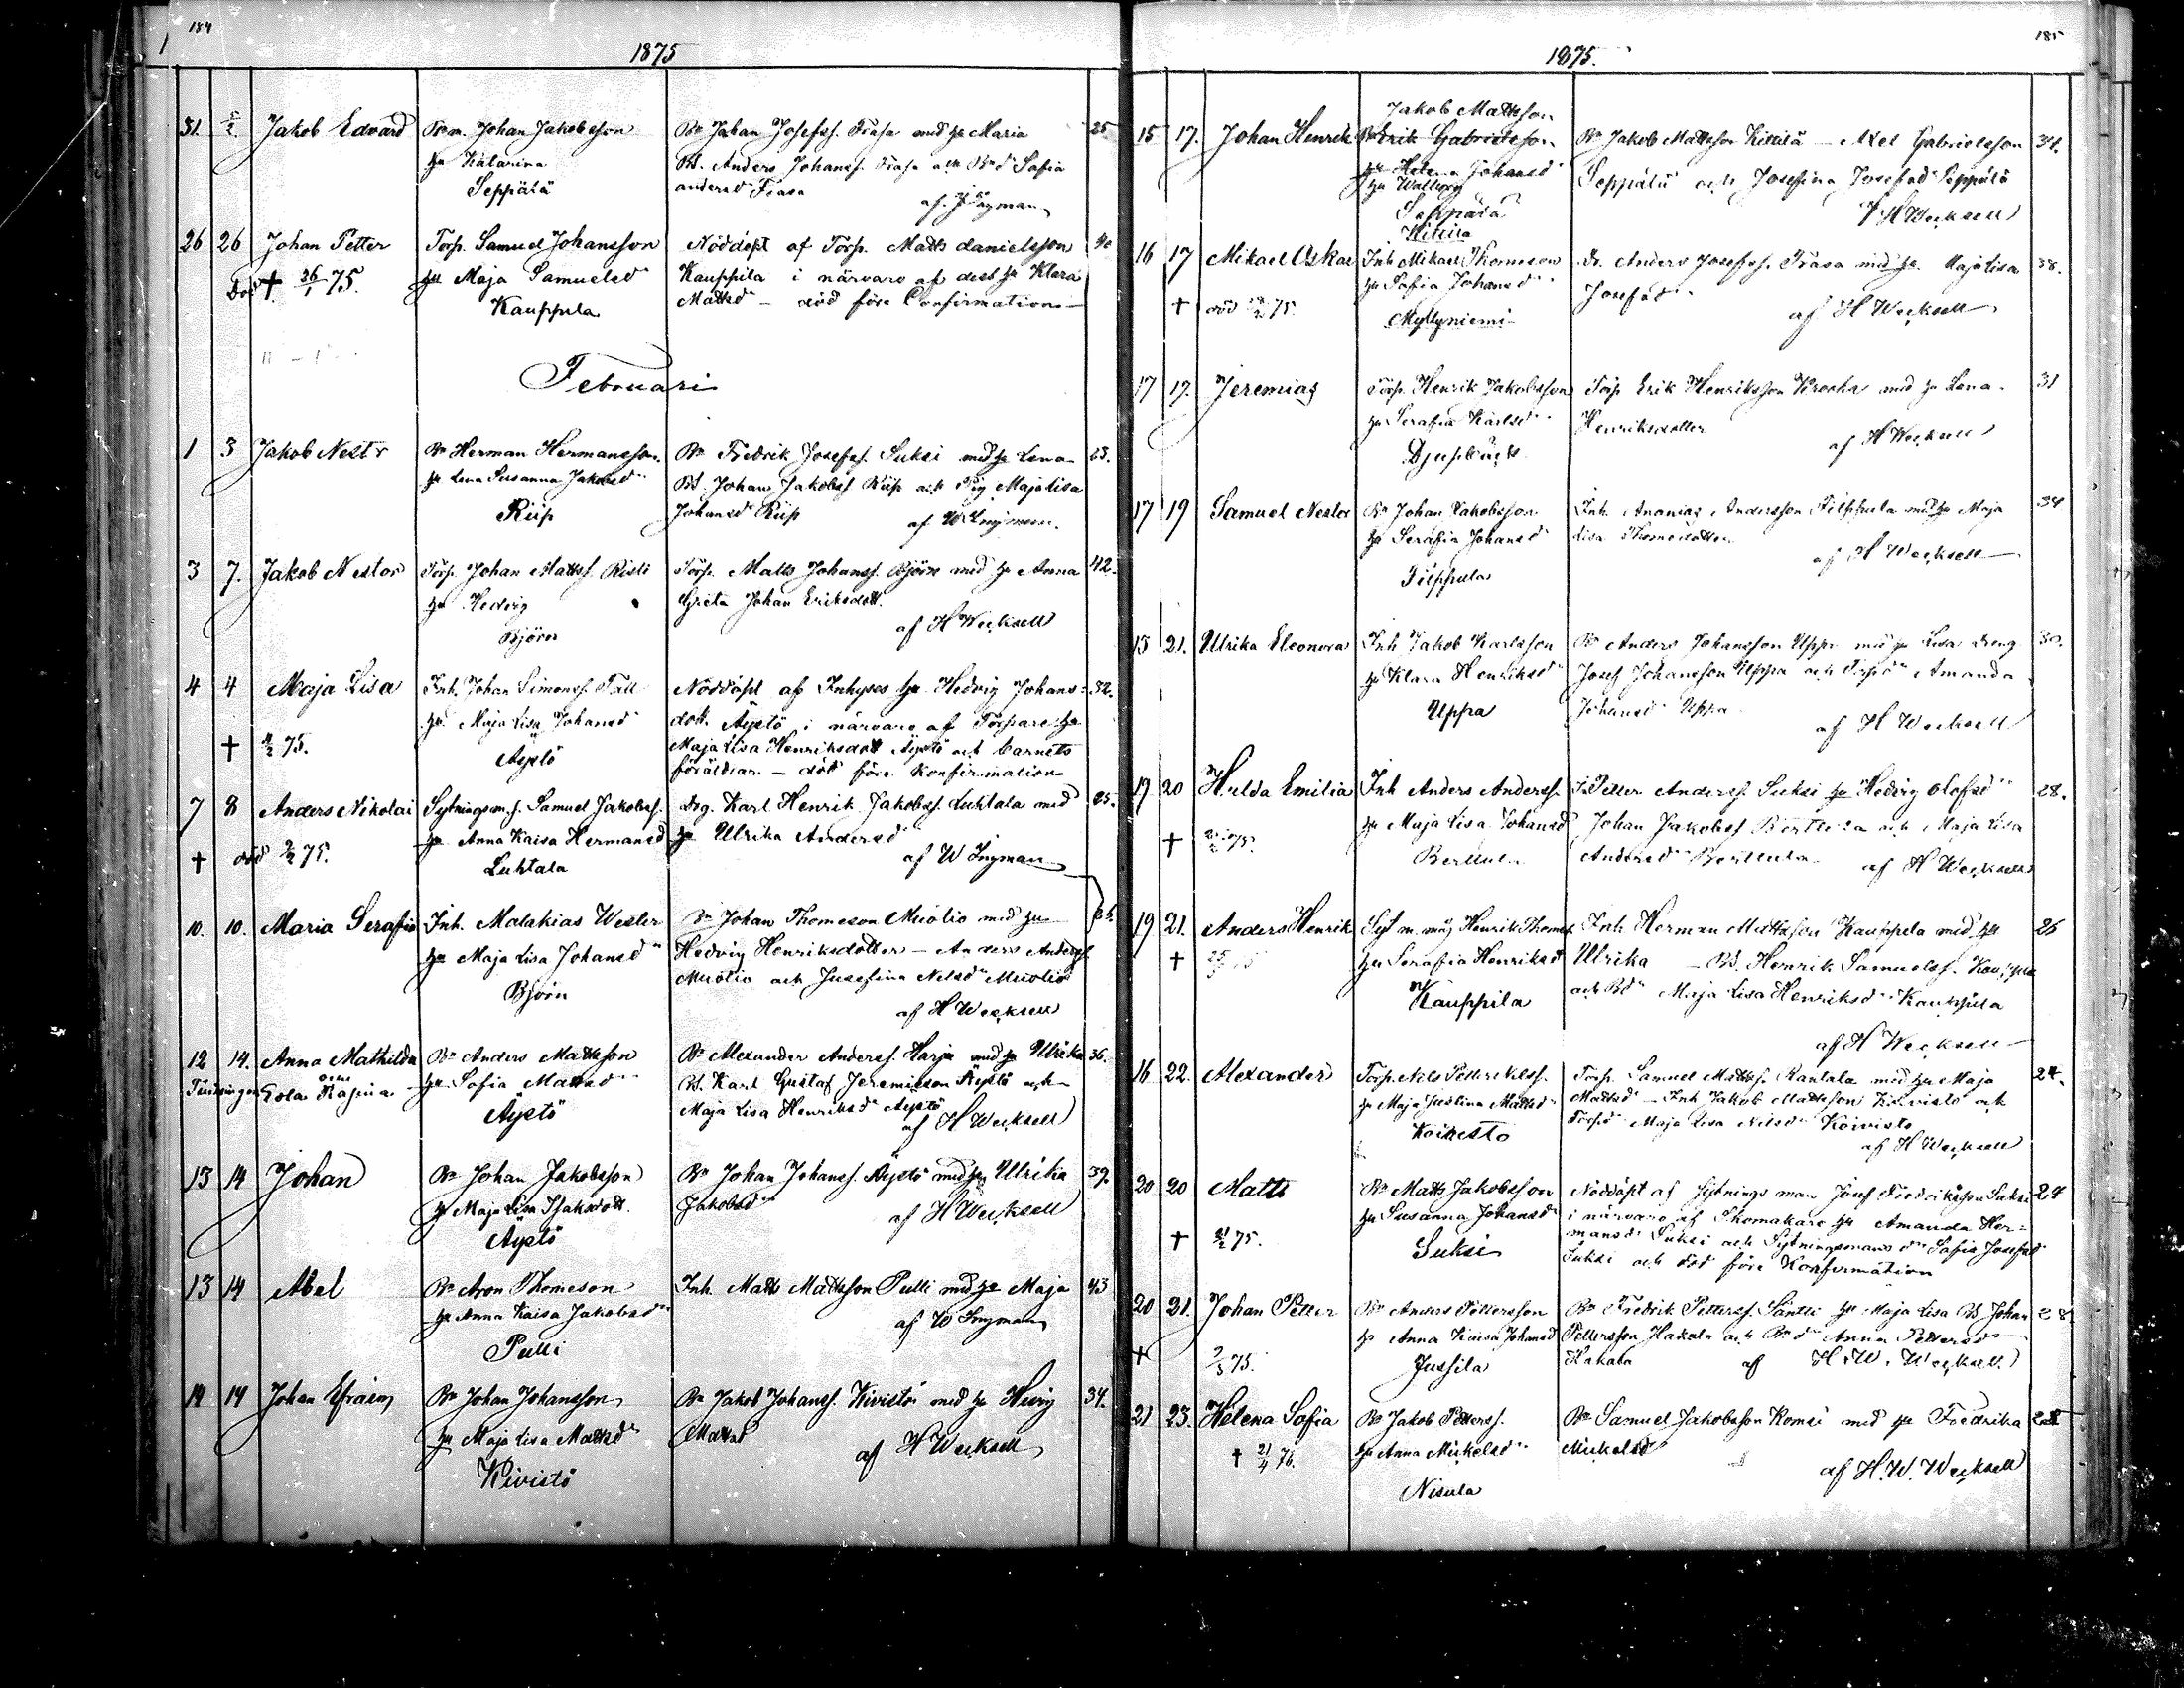 184
1875
31. 5/2 Jakob Edvard Bm. Johan Jakobsson Bn Johan Josefss. Frasa med hu Maria 25
hu Katarina Bs. Anders Johanss. Frasa och Bnd Sofia
Seppälä andersd Frasa
af Ingman
26 26 Johan Petter Torp. Samuel Johansson Nöddöpt af Torp. Matts danielsson 40
Död † 26/1 75. hu Maja Samuelsd Kauppila i närvaro af dess hu Klara
Kauppila Mattsd – död före Confirmation –
Februari
1 3 Jakob Nestor Bn Herman Hermansson. Bn Fredrik Josefss. Suksi med hu Lena
hu Lena Susanna Jakobsd Bs. Johan Jakobss Riip och Pig. Maja Lisa
Riip Johansd Riip af W Ingman.
3 7. Jakob Nestor Torp. Johan Mattss. Risti Torp. Matts Johanss. Björn med hu Anna 42.
hu Hedvig Greta Johan Eriksdott.
Björn af H Wecksell
4 4 Maja Lisa Inh. Johan Simonss. Tall Nöddöpt af Inhyses hu Hedvig Johans= 32.
hu Maja Lisa Johansd dott. Äystö i närvaro af Torpare hu
† 4/2 75. Äystö Maja Lisa Henriksdott Äystö och barnets
föräldrar – död före Konfirmation
7 8 Anders Nikolai Sytningsm.s. Samuel Jakobss. Drg. Karl Henrik Jakobss. Luhtala med 25.
hu Anna Kaisa Hermansd hu Ulrika Andersd
† död 9/2 75. Luhtala af W Ingman
10. 10. Maria Serafia Inh. Malakias Wester Bn Johan Thomeson Muotio med hu
hu Maja Lisa Johansd Hedvig Henriksdotter – Anders Anderss.
Björn Muotio och Josefina Nelsd Muotio
af H Wecksell
12 14. Anna Mathilda Bn Anders Mattsson Bn Alexander Anderss. Harju med hu Ulrika 36.
Tvillingar och Eola Kajsina hu Sofia Mattsd Bs. Karl Gustaf Jeremiesson Äystö och
Äystö Maja Lisa Henriksd Äystö
af H Wecksell
13 14 Johan Bn Johan Jakobsson Bn Johan Johanss. Äystö med hu Ulrika 39.
hu Maja Lisa Isaksdott. Jakobsd
Äystö af H Wecksell
13 14 Abel Bn Aron Thomeson Inh. Matts Mattsson Pulli med hu Maja 43
hu Anna Kaisa Jakobsd af W Ingman
Pulli
14 14 Johan Efraim Bn Johan Johansson Bn Jakob Johanss. Kivistö med hu Hevig 34.
hu Maja Lisa Mattsd Mattsd
Kivistö af H Wecksell
185
1875.
Jakob Mattsson
15 17. Johan Henrik Bn Erik Gabrielsson Bn Jakob Mattsson Kittilä – Axel Gabrielsson 34.
hu Helena Johansd Seppälä och Josefina Josefsd Seppälä
hu Walborg
Seppälä H Wecksell
Kittilä
16 17 Mikael Oskar Inh Mikael Thomeson Dr. Anders Josefss. Frasa med hu. Maja Lisa 38.
hu Sofia Johansd Josefsd
† död 75. Myllyniemi af H Wecksell
17 17. Jeremias Torp. Henrik Jakobsson Torp Erik Henriksson Krooka med hu Lena 31
hu Serafia Karlsd Henriksdotter
Djupbäck af H Wecksell
17 19 Samuel Nestor Bn Johan Jakobsson Inh. Ananias Andersson Filppula med hu Maja 34
hu Serafia Johansd Lisa Thomesdotter
Filppula af H Wecksell
15 21. Ulrika Eleonora Inh Jakob Karlsson Bn Anders Johansson Uppa med hu Lisa Dreng 30.
hu Klara Henriksd Josef Johansson Uppa och Torpd Amanda
Uppa Johansd Uppa
af H Wecksell
17 20 Hulda Emilia Inh Anders Anderss. Petter Anderss. Suksi hu Hedvig Olofsd 28.
hu Maja Lisa Johansd Johan Jakobss Berttula och Maja Lisa
† 75. Berttula Andersd Berttula af H Wecksell
19 21. Anders Henrik Syt.m. måg Henrik Thomes Inh. Herman Mattsson Kauppila med hu 25
† hu Serafia Henriksd Ulrika – Bs. Henrik Samuelss. Kauppila
Kauppila och Bd Maja Lisa Henriksd Kauppila
af H Wecksell
16 22. Alexander Torp. Nels Petter Nelss. Torp. Samuel Mattss. Rantala med hu Maja 24.
hu Maja Justina Mattsd Mattsd – Inh Jakob Mattsson Koivisto och
Koivisto Torpd Maja Lisa Nelsd Koivisto
af H Wecksell
20 20 Matts Bn Matts Jakobsson Nöddöpt af Sytningsman Josef Fredriksson Suksi 27
hu Susanna Johansd i närvaro af Skomakare hu Amanda Her=
† 21/2 75. Suksi mansd Suksi och Sytningsmans d Sofia Josefsd
Suksi och död före Konfirmation
20 21. Johan Petter Bn Anders Pettersson Bn Fredrik Petterss. Säntti hu Maja Lisa Bs Johan 28
hu Anna Kaisa Johansd Pettersson Hakala och Bnd Anna Pettersd
† 7/3 75. Jussila Hakala af H. W. Wecksell
21 23. Helena Sofia Bn Jakob Petterss. Bn Samuel Jakobsson Romsi med hu Fredrika
† 21/4 76. hu Anna Mickelsd Mickelsd
Nisula af H. W. Wecksell